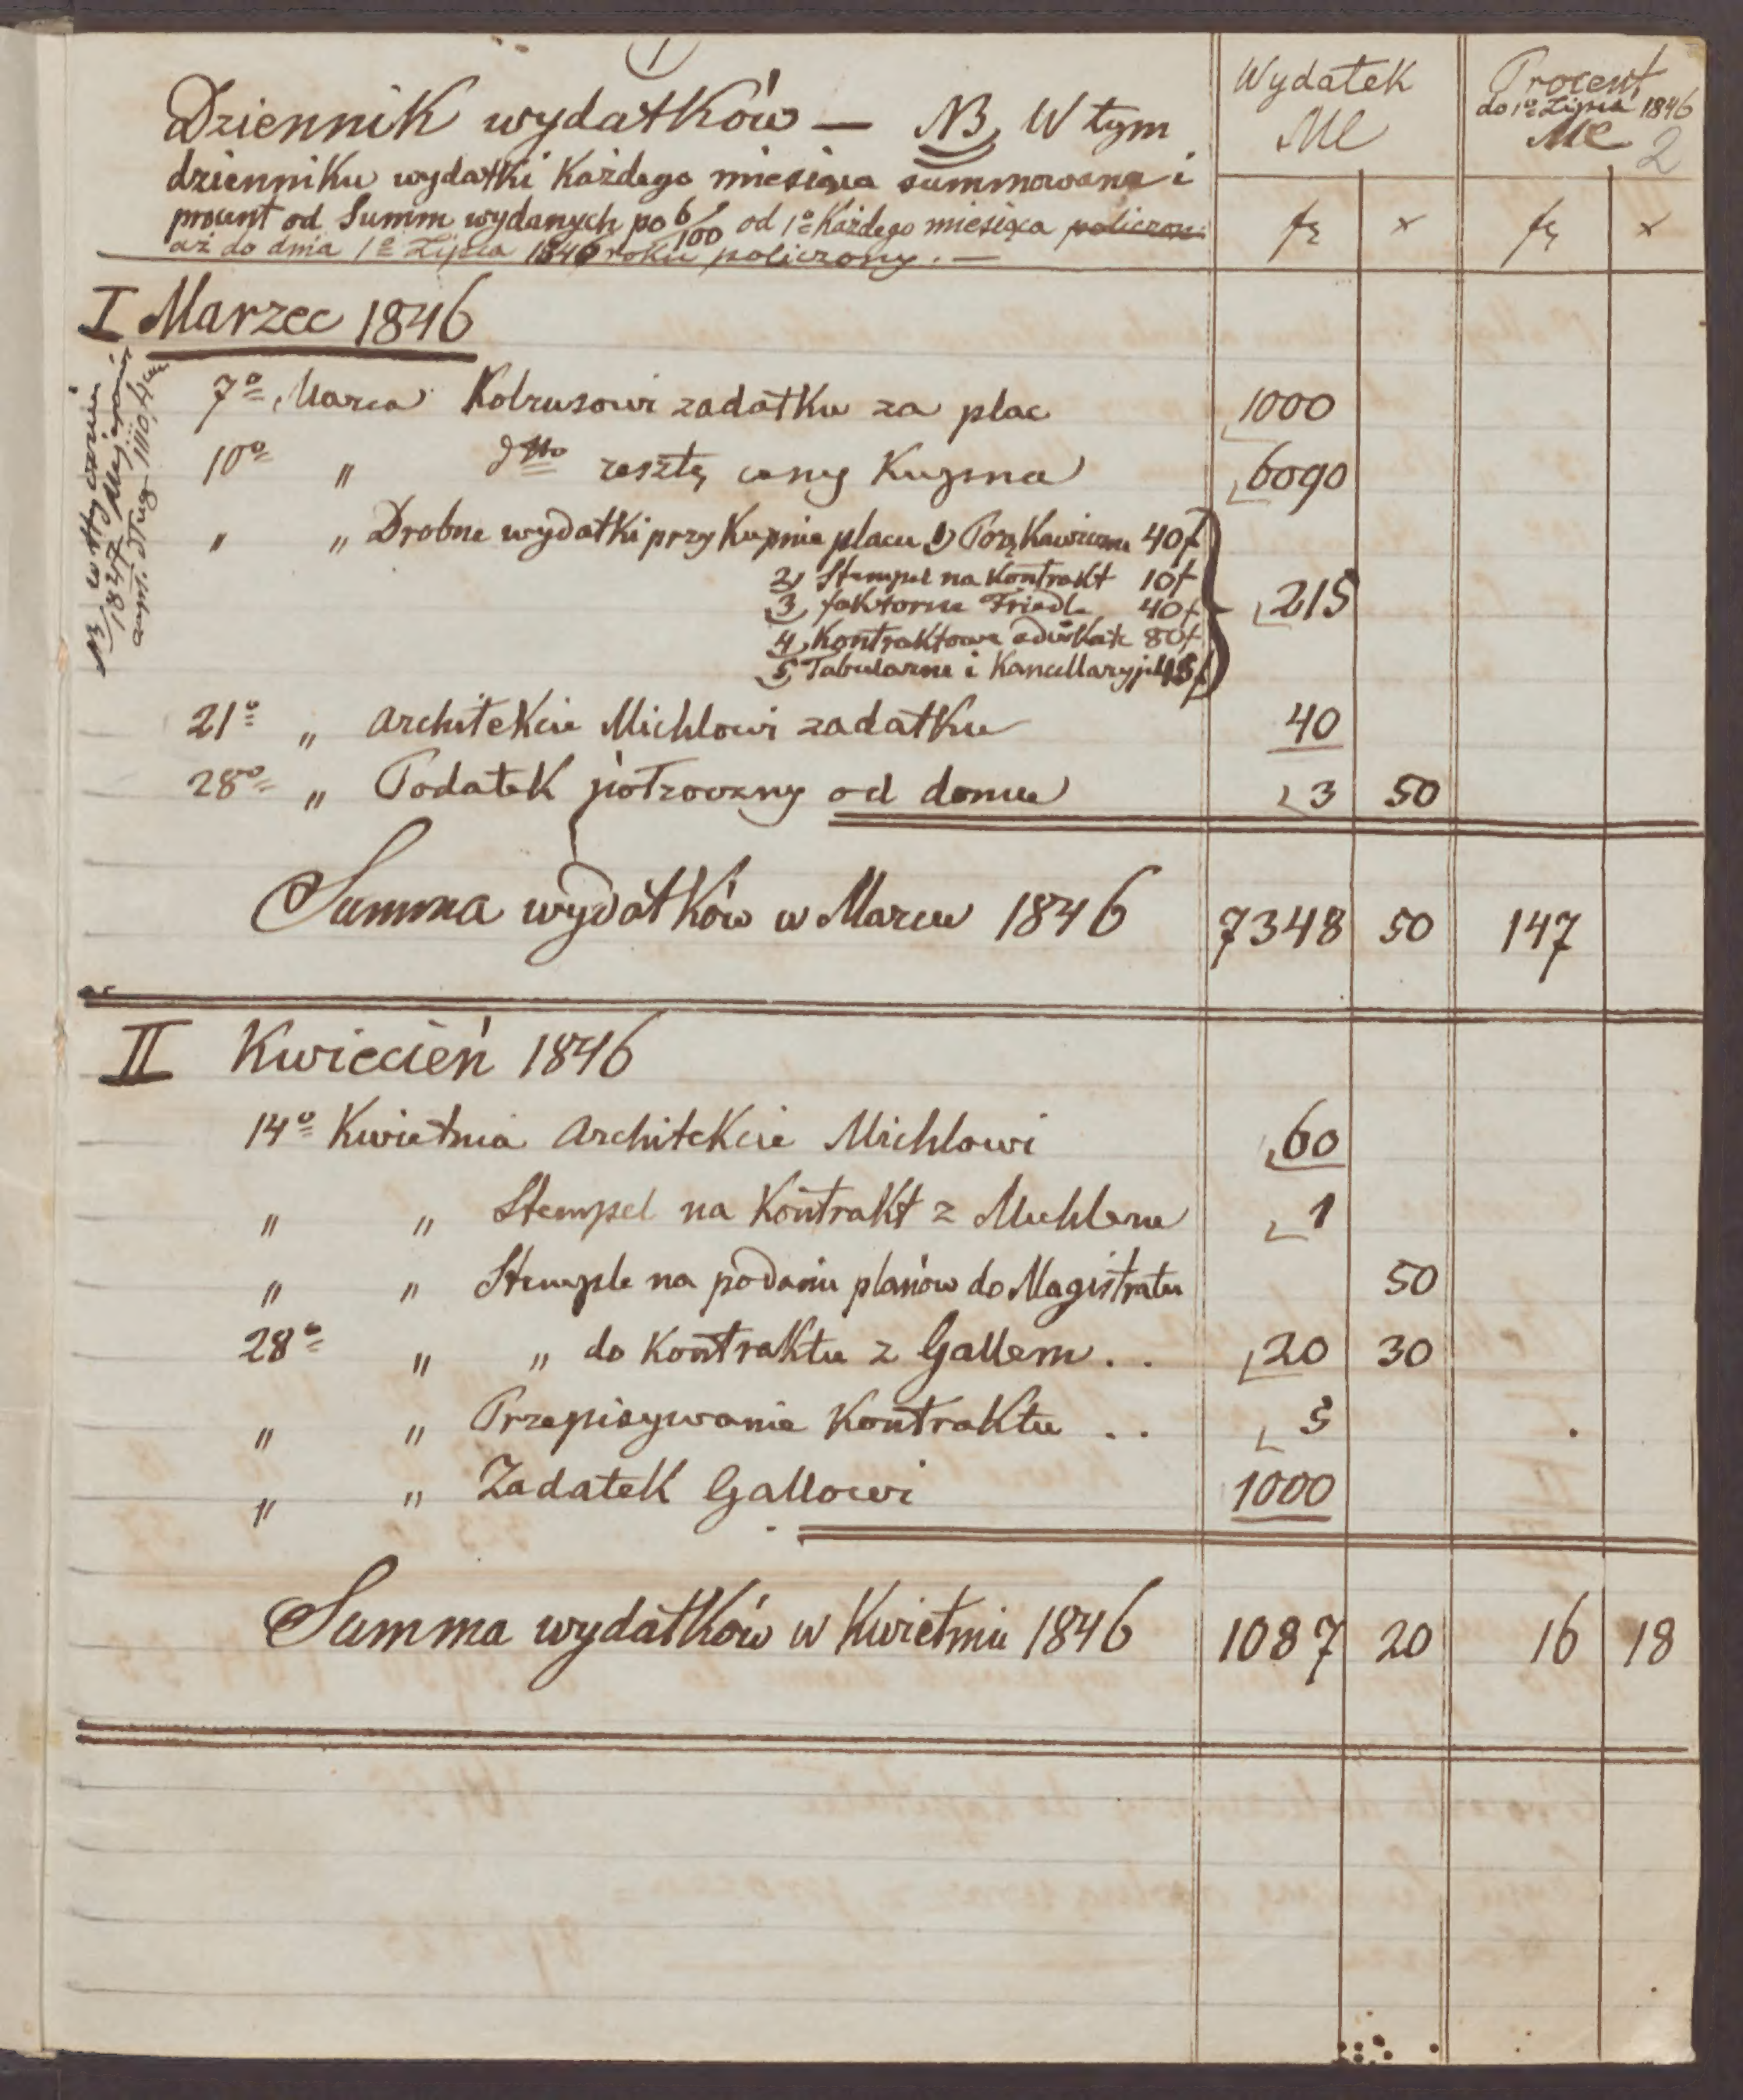 1
Dziennik wydatków — NB W tym
dzienniku wydatki Każdego miesiąca summowane i
procent od Summ wydanych po 6/100 od 1º Każdego miesiąca policzon
aż do dnia 1º Lipca 1846 roku policzony. —
Wydatek
Mk
fr x
Procent
do 1º Lipca 1846
Mk 2
fr x
I Marzec 1846
NB
1847
7º Marca Kobzusowi zadatku za plac 1000
10º " dtto resztę ceny Kupna 6090
" " Drobne wydatki przy Kupnie placu 1) 40 f
2) Stempel na Kontrakt 10 f
3) faktorne Friedl 40 f
4) Kontraktowe adwokat 80 f
5) Tabularne i Kancellaryjne 45 f
215
21º " Architekcie Michlowi zadatku 40
28º " Podatek półroczny od domu 3 50
Summa wydatków w Marcu 1846 7348 50 147
II Kwiecień 1846
14º Kwietnia Architekcie Michlowi 60
" " Stempel na Kontrakt z Michlem 1
" " Stemple na podaniu planów do Magistratu 50
28º " " do Kontraktu z Gallem . . 20 30
" " Przepisywanie Kontraktu . . 5
" " Zadatek Gallowi 1000
Summa wydatków w Kwietniu 1846 1087 20 16 18